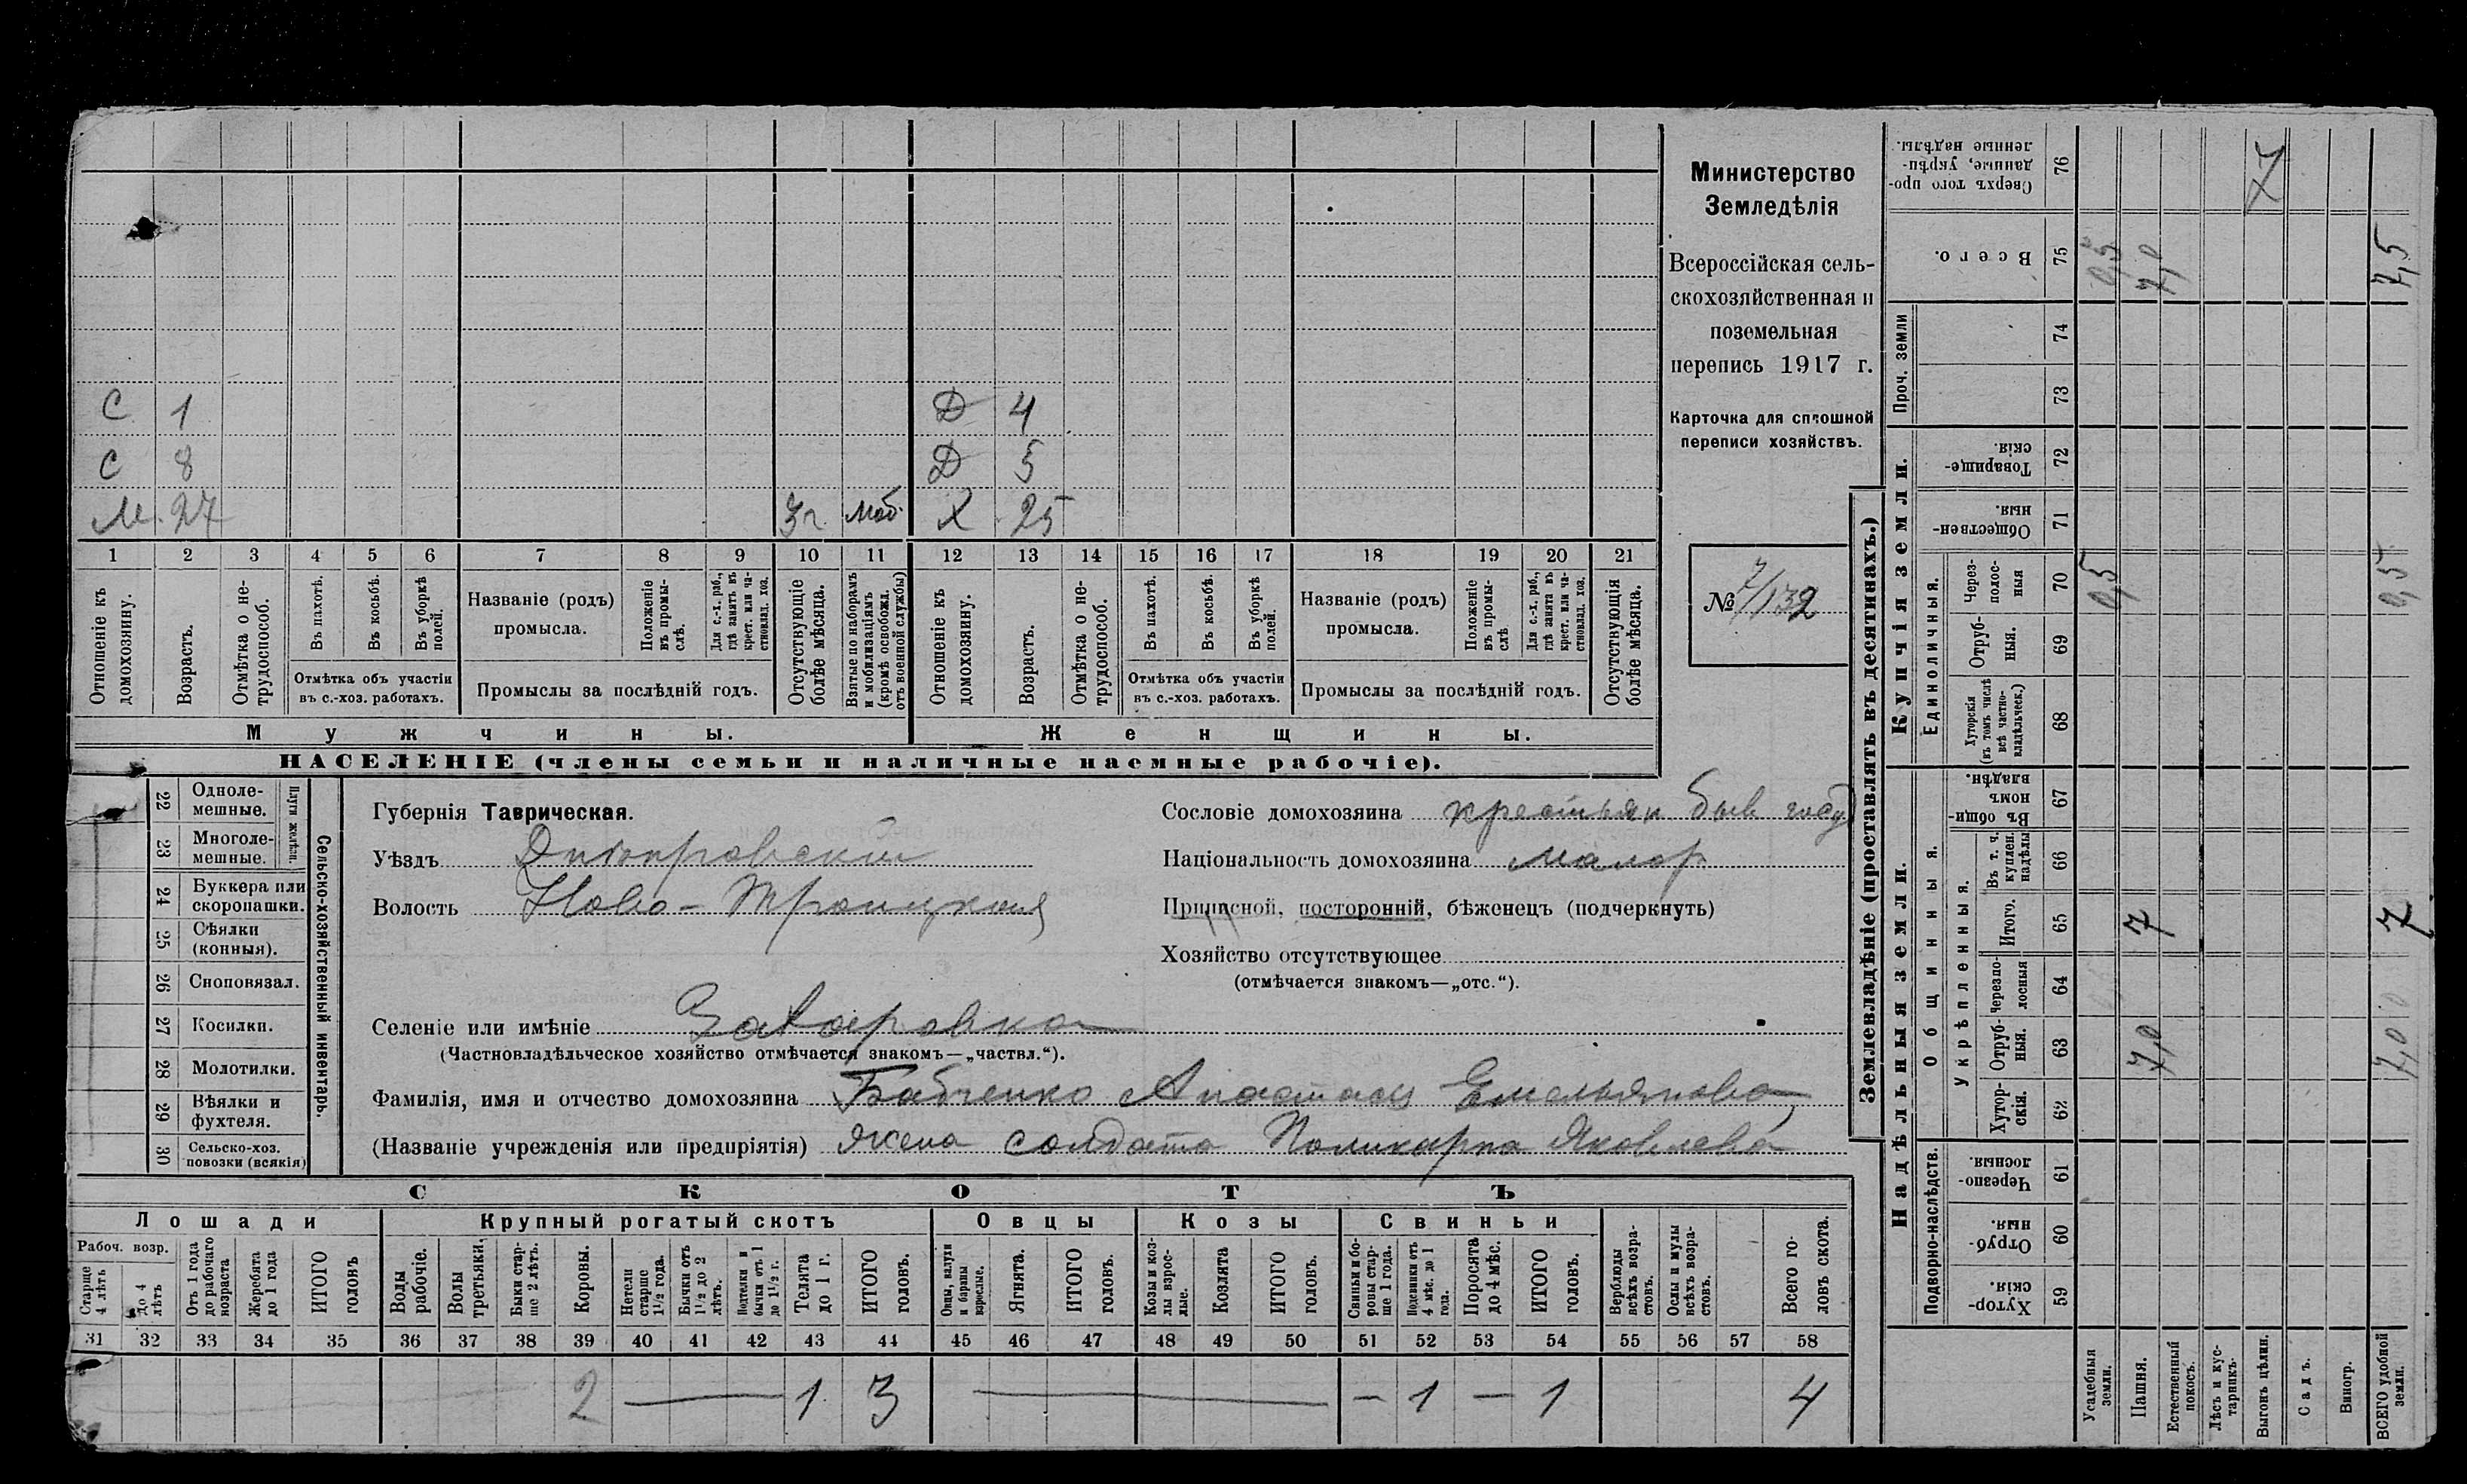 С 1 Д 4
С 8 Д 5
М. 27 3 г. Моб. Х 25
1 2 3 4 5 6 7 8 9 10 11 12 13 14 15 16 17 18 19 20 21
Отношеніе къ домохозяину.
Возрастъ.
Отмѣтка о не-
трудоспособ.
Въ пахотѣ.
Въ косьбѣ.
Въ уборкѣ
полей.
Отмѣтка объ участіи
въ с.-хоз. работахъ.
Названіе (родъ)
промысла.
Положеніе
въ промы-
слѣ.
Для с.-х. раб.,
гдѣ занятъ въ
крест. или ча-
стновлад. хоз.
Промыслы за послѣдній годъ.
Отсутствующіе
болѣе мѣсяца.
Взятые по наборамъ
и мобилизаціямъ
(кромѣ освобожд.
отъ военной службы)
Отношеніе къ
домохозяину.
Возрастъ.
Отмѣтка о не-
трудоспособ.
Въ пахотѣ.
Въ косьбѣ.
Въ уборкѣ
полей.
Отмѣтка объ участіи
въ с.-хоз. работахъ.
Названіе (родъ)
промысла.
Положеніе
въ промы-
слѣ
Для с.-х. раб.,
гдѣ занята въ
крест. или ча-
стновлад. хоз.
Промыслы за послѣдній годъ.
Отсутствующія
болѣе мѣсяца.
Мужчины.
Женщины.
НАСЕЛЕНІЕ (члены семьи и наличные наемные рабочіе).
Министерство
Земледѣлія
Всероссійская сель-
скохозяйственная и
поземельная
перепись 1917 г.
Карточка для сплошной
переписи хозяйствъ.
№ 7/132
22 Одноле-
мешные.
23 Многоле-
мешные.
Плуги желѣзн.
24 Буккера или
скоропашки.
25 Сѣялки
(конныя).
26 Сноповязал.
27 Косилки.
28 Молотилки.
29 Вѣялки и
фухтеля.
30 Сельско-хоз.
повозки (всякія)
Сельско-хозяйственный инвентарь.
Губернія Таврическая.
Уѣздъ Днѣпровскій
Волость Ново-Троицкая
Сословіе домохозяина крестьян быв госуд
Національность домохозяина Малор
Приписной, посторонній, бѣженецъ (подчеркнуть)
Хозяйство отсутствующее
(отмѣчается знакомъ—„отс.“).
Селеніе или имѣніе Захаровка
(Частновладѣльческое хозяйство отмѣчается знакомъ—„частвл.“).
Фамилія, имя и отчество домохозяина Бабченко Анастасія Емельянова,
(Названіе учрежденія или предпріятія) жена солдата Поликарпа Яковлева
СКОТЪ
Лошади
Крупный рогатый скотъ
Овцы
Козы
Свиньи
Рабоч. возр.
Старше
4 лѣтъ
до 4
лѣтъ
Отъ 1 года
до рабочаго
возраста
Жеребята
до 1 года
ИТОГО
головъ
Волы
рабочіе.
Волы
третьяки.
Быки стар-
ше 2 лѣтъ.
Коровы.
Нетели
старше
1½ года.
Бычки отъ
1½ до 2
лѣтъ.
Подтелки и
бычки отъ 1
до 1½ г.
Телята
до 1 г.
ИТОГО
головъ.
Овцы, валухи
и бараны
взрослые.
Ягнята.
ИТОГО
головъ.
Козы и коз-
лы взрос-
лые.
Козлята
ИТОГО
головъ.
Свиньи и бо-
ровы стар-
ше 1 года.
Подсвинки отъ
4 мѣс. до 1
года.
Поросята
до 4 мѣс.
ИТОГО
головъ.
Верблюды
всѣхъ возра-
стовъ.
Ослы и мулы
всѣхъ возра-
стовъ.
Всего го-
ловъ скота.
31 32 33 34 35 36 37 38 39 40 41 42 43 44 45 46 47 48 49 50 51 52 53 54 55 56 57 58
2 — 1 3 — — 1 — 1 4
Землевладѣніе (проставлять въ десятинахъ.)
Купчія земли.
Надѣльныя земли.
Сверхъ того про-
данные, укрѣп-
ленные надѣлы.
76 7
Всего.
75 0,5 7,0 7,5
Проч. земли
74
73
Товарище-
скія.
72
Обществен-
ныя.
71
Единоличныя.
Через-
полос-
ныя
70 0,5 0,5
Отруб-
ныя.
69
Хуторскія
(въ томъ числѣ
всѣ частно-
владѣльческ.)
68
Общинныя.
Въ общи-
номъ
владѣн.
67
Укрѣпленныя.
Въ т. ч.
куплен.
надѣлы
66
Итого.
65 7 7
Черезпо-
лосныя
64
Отруб-
ныя.
63 7,0 7,0
Хутор-
скія.
62
Подворно-наслѣдств.
Черезпо-
лосныя.
61
Отруб-
ныя.
60
Хутор-
скія.
59
Усадебныя
земли.
Пашня.
Естественный
покосъ.
Лѣсъ и кус-
тарникъ.
Выгонъ цѣлин.
Садъ.
Виногр.
ВСЕГО удобной
земли.